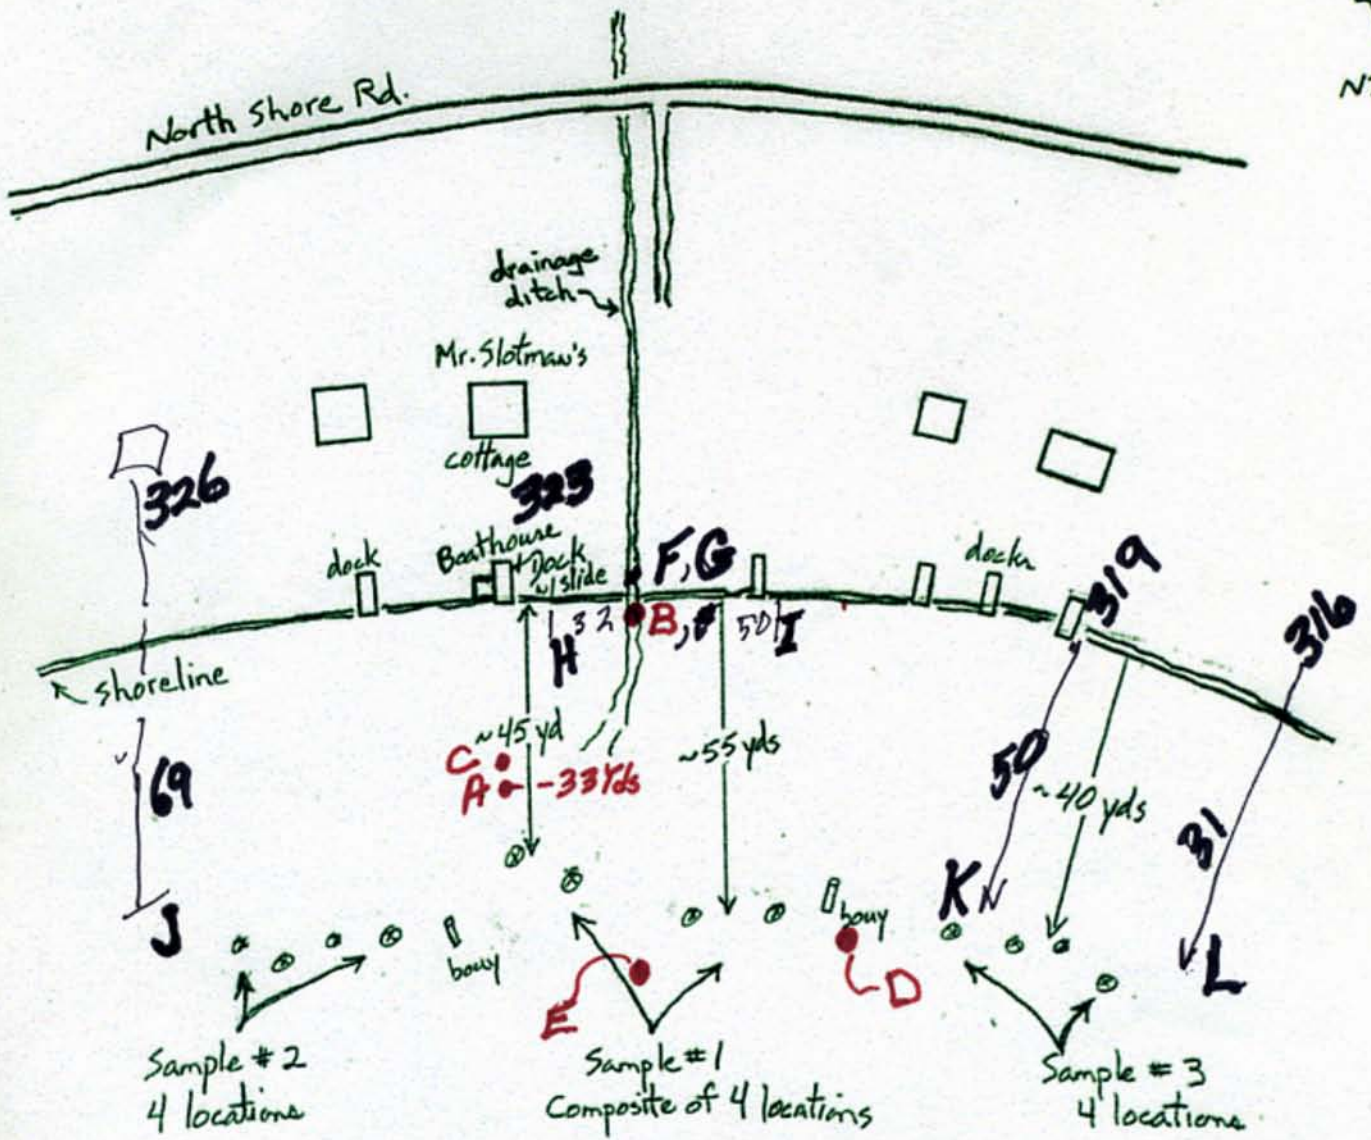 North Shore Rd.
drainage
ditch
Mr. Slotman's
cottage
326
323
Boathouse
+ Dock
w/ slide
dock
F, G
docks
319
316
H
32
B,
50
I
shoreline
~45 yd
~55 yds
C
A - 33 Yds
69
50
~40 yds
31
J
K
L
bouy
bouy
E
D
Sample #2
4 locations
Sample #1
Composite of 4 locations
Sample #3
4 locations